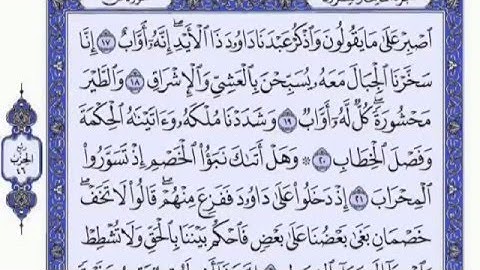 ٱصْبِرْ عَلَىٰ مَا يَقُولُونَ وَٱذْكُرْ عَبْدَنَا دَاوُۥدَ ذَا ٱلْأَيْدِ ۖ إِنَّهُۥٓ أَوَّابٌ ١٧ إِنَّا
سَخَّرْنَا ٱلْجِبَالَ مَعَهُۥ يُسَبِّحْنَ بِٱلْعَشِىِّ وَٱلْإِشْرَاقِ ١٨ وَٱلطَّيْرَ
مَحْشُورَةً ۖ كُلٌّ لَّهُۥٓ أَوَّابٌ ١٩ وَشَدَدْنَا مُلْكَهُۥ وَءَاتَيْنَٰهُ ٱلْحِكْمَةَ
وَفَصْلَ ٱلْخِطَابِ ٢٠ ۞ وَهَلْ أَتَىٰكَ نَبَؤُا۟ ٱلْخَصْمِ إِذْ تَسَوَّرُوا۟
ٱلْمِحْرَابَ ٢١ إِذْ دَخَلُوا۟ عَلَىٰ دَاوُۥدَ فَفَزِعَ مِنْهُمْ ۖ قَالُوا۟ لَا تَخَفْ ۖ
خَصْمَانِ بَغَىٰ بَعْضُنَا عَلَىٰ بَعْضٍ فَٱحْكُم بَيْنَنَا بِٱلْحَقِّ وَلَا تُشْطِطْ
الحزب
٤٦